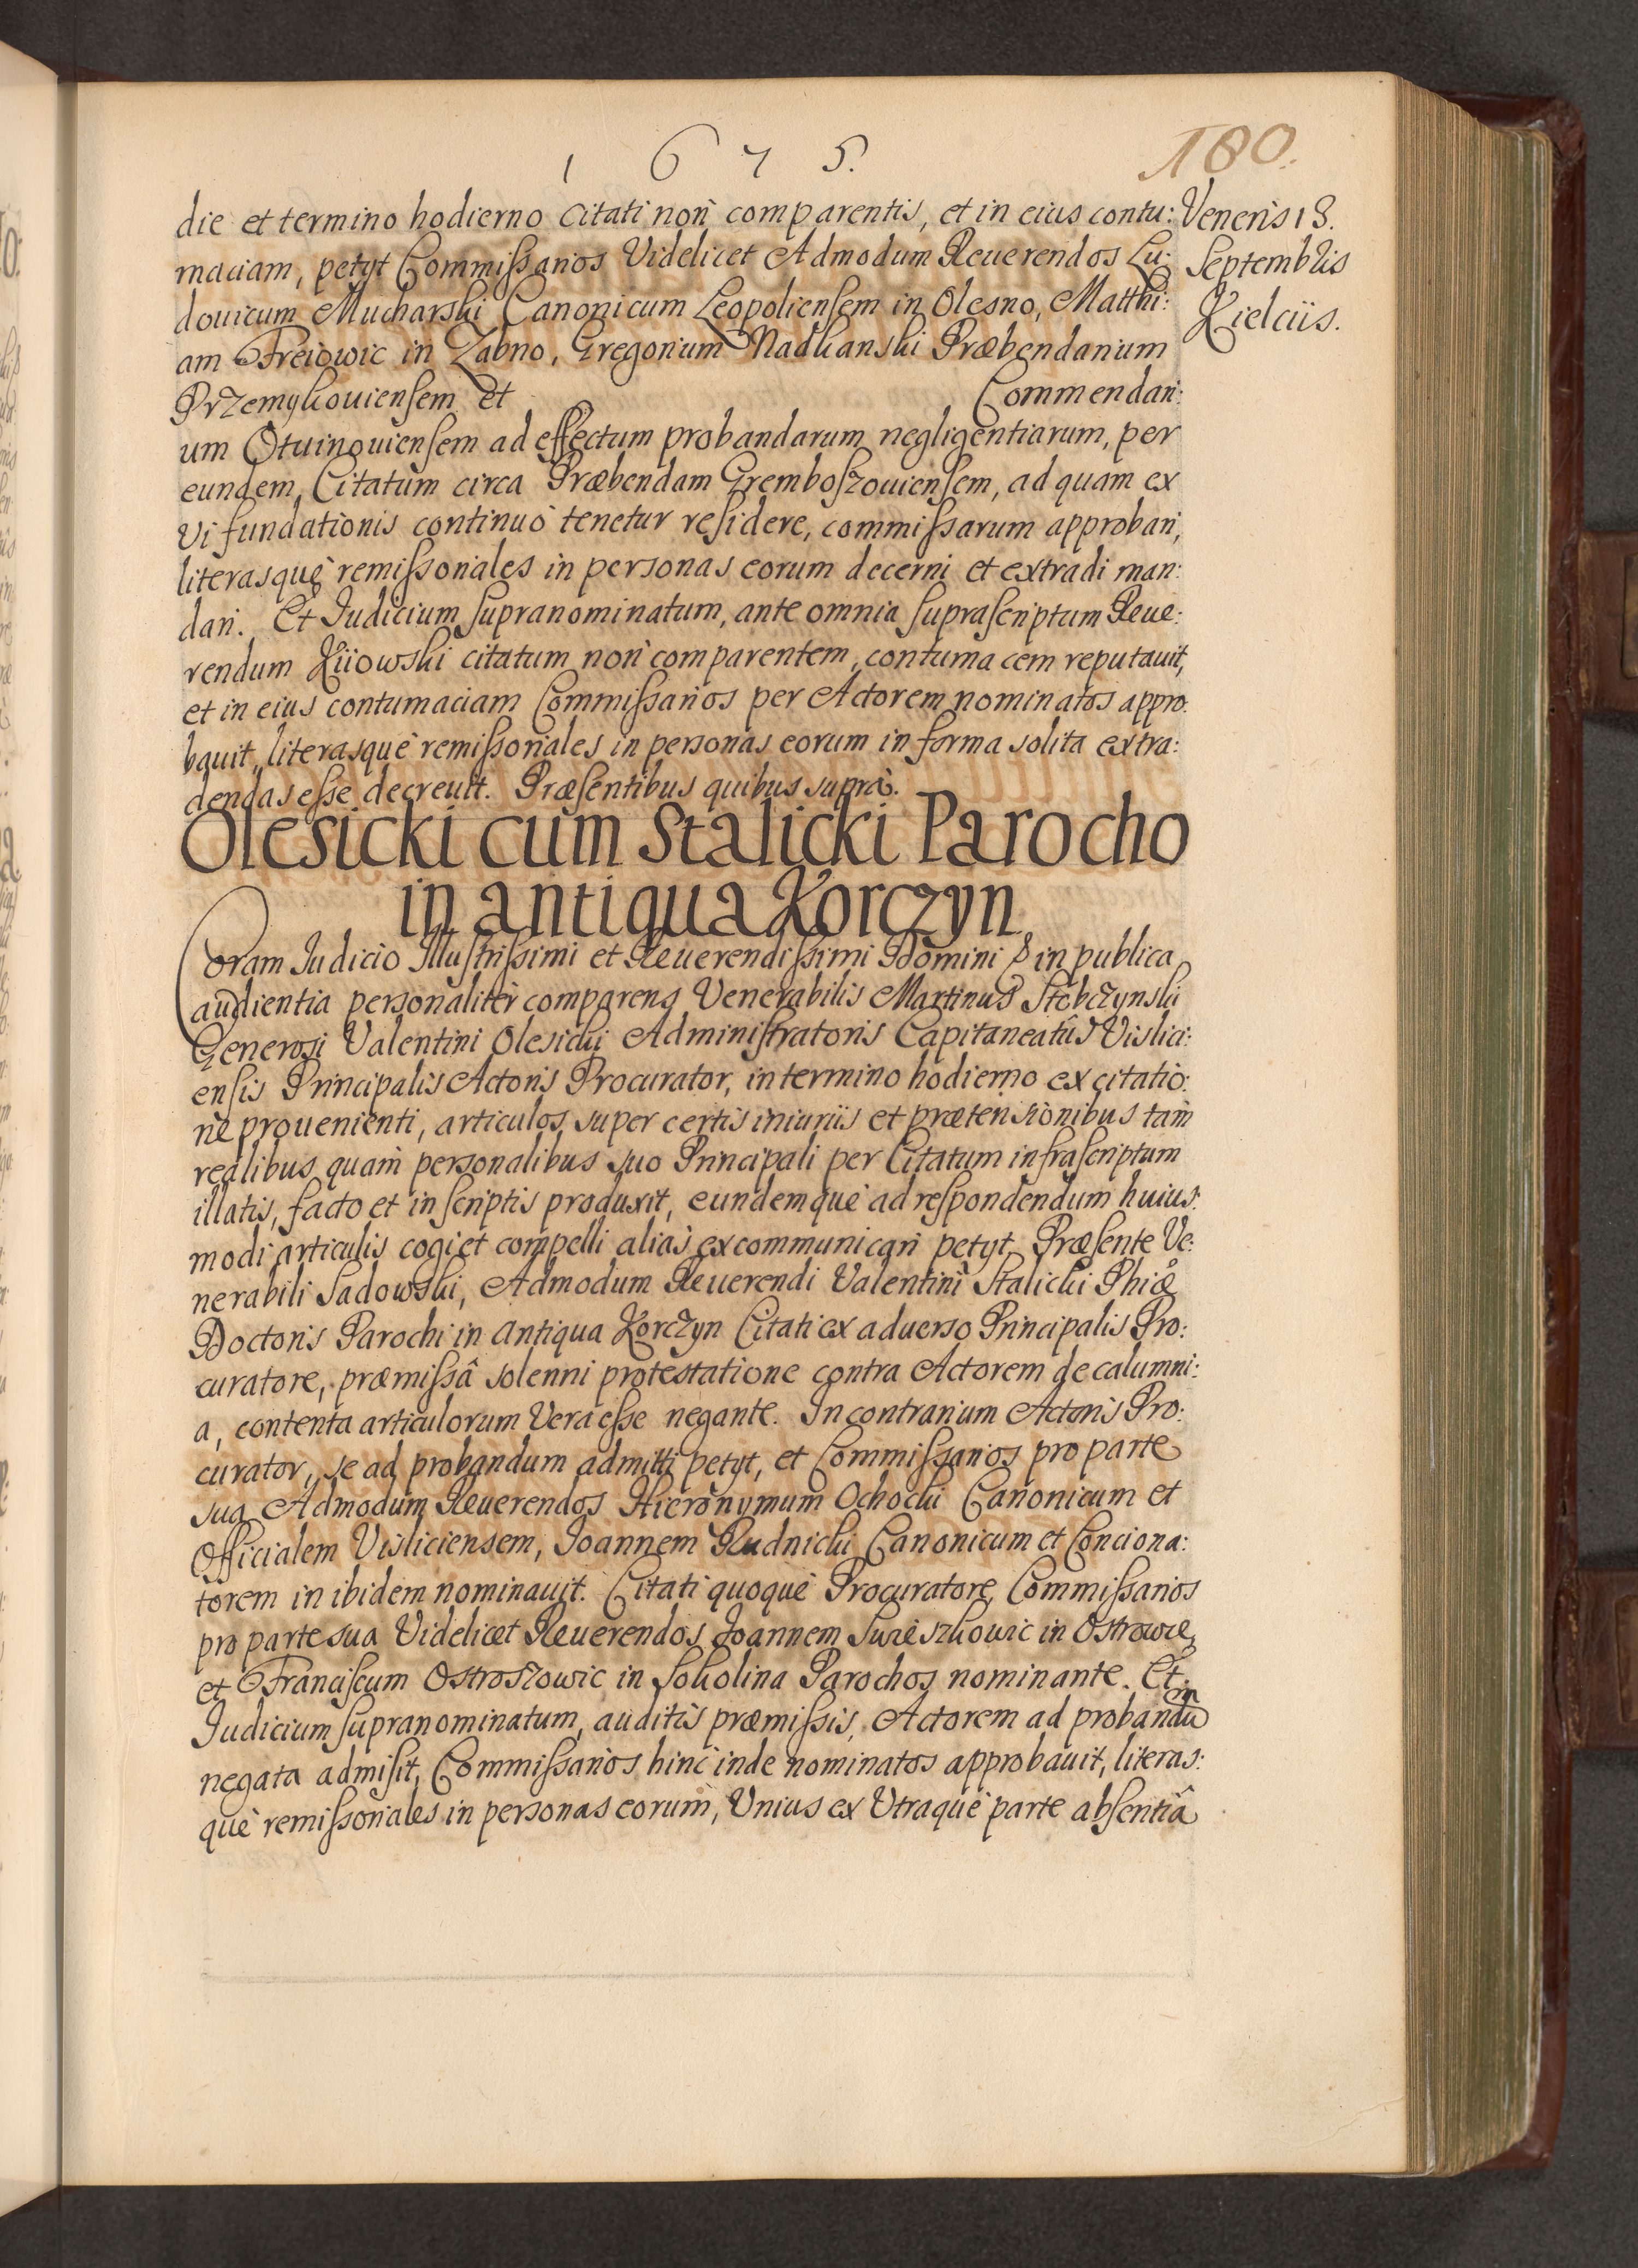 1675.
180.
Veneris 18.
Septembris
Kielciis.
die et termino hodierno citati non comparentis, et in eius contu:
maciam, petyt Commissarios Videlicet Admodum Reuerendos Lu:
douicum Mucharski Canonicum Leopoliensem in Olesno, Matthi:
am Freiowic in Zabno, Gregorium Nadkanski Præbendarium
Przemykouiensem et Commendari:
um Otuinouiensem ad effectum probandarum negligentiarum, per
eundem Citatum circa Præbendam Gremboszouiensem, ad quam ex
Vi fundationis continuò tenetur residere, commissarum approbari,
literasquè remissoriales in personas eorum decerni et extradi man:
dari. Et Iudicium supranominatum, ante omnia suprascriptum Reue:
rendum Kiiowski citatum non comparentem, contumacem reputauit,
et in eius contumaciam Commissarios per Actorem nominatos appro:
bauit, literasquè remissoriales in personas eorum in forma solita extra:
dendas esse decreuit. Præsentibus quibus suprà.
Olesicki cum Stalicki Parocho
in antiqua Korczyn
Coram Iudicio Illustrissimi et Reuerendissimi Domini & in publica
audientia personalitèr comparens Venerabilis Martinus Stobczynski
Generosi Valentini Olesicki Administratoris Capitaneatûs Vislici:
ensis Principalis Actoris Procurator, in termino hodierno ex citatio:
ne prouenienti, articulos super certis iniuriis et prætensionibus tàm
realibus quàm personalibus suo Principali per Citatum infrascriptum
illatis, facto et in scriptis produxit, eundemquè ad respondendum huius:
modi articulis cogi et compelli aliàs excommunicari petyt. Præsente Ve:
nerabili Sadowski, Admodum Reuerendi Valentini Stalicki Phiæ
Doctoris Parochi in Antiqua Korczyn Citati ex aduerso Principalis Pro:
curatore, præmissâ solenni protestatione contra Actorem de calumni:
a, contenta articulorum Vera esse negante. In contrarium Actoris Pro:
curator, se ad probandum admitti petyt, et Commissarios pro parte
sua Admodum Reuerendos Hieronymum Ochocki Canonicum et
Officialem Visliciensem, Ioannem Rudnicki Canonicum et Conciona:
torem in ibidem nominauit. Citati quoquè Procuratore, Commissarios
pro parte sua Videlicet Reuerendos Ioannem Swieszkowic in Ostrowce,
et Franciscum Ostroszowic in Sokolina Parochos nominante. Et
Iudicium supranominatum, auditis præmissis, Actorem ad probandum
negata admisit, Commissarios hinc inde nominatos approbauit, literas:
què remissoriales in personas eorum, Vnius ex Vtraquè parte absentiâ